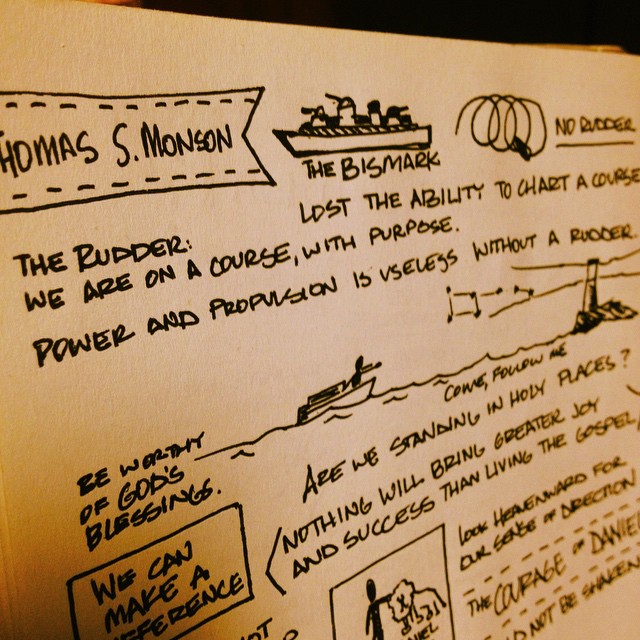 THOMAS S. MONSON
THE BISMARK
NO RUDDER
LOST THE ABILITY TO CHART A COURSE
THE RUDDER:
WE ARE ON A COURSE, WITH PURPOSE.
POWER AND PROPULSION IS USELESS WITHOUT A RUDDER
COME, FOLLOW ME
ARE WE STANDING IN HOLY PLACES?
NOTHING WILL BRING GREATER JOY
AND SUCCESS THAN LIVING THE GOSPEL
BE WORTHY
OF GOD'S
BLESSINGS.
WE CAN
MAKE A
DIFFERENCE
LOOK HEAVENWARD FOR
OUR SENSE OF DIRECTION
THE COURAGE OF DANIEL
NOT BE SHAKEN
NOT